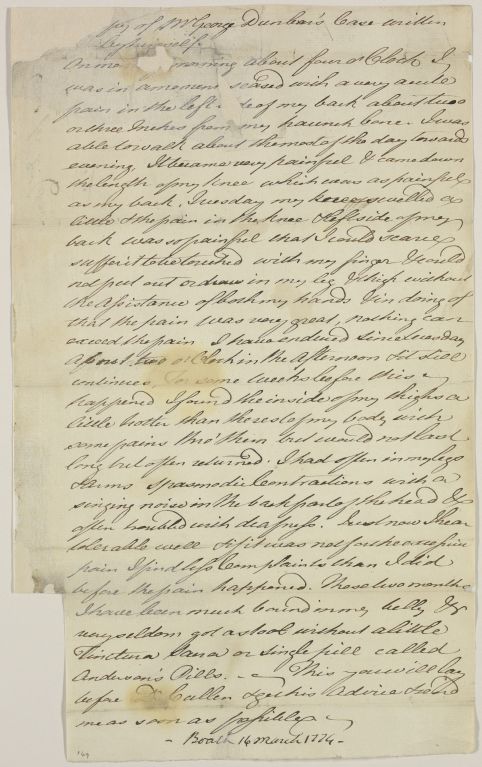 py of Mr George Dunbar's Case written
by himself.
On mo morning about four o Clock I
was in a moment seased with a very acute
pain in the left side of my back about two
or three Inches from my haunch bone. I was
able to walk about the most of the day towards
evening, It became very painful & came down
the length of my knee which was as painful
as my back. Tuesday my knee swelled a
little & the pain in the knee & left side of my
back was so painful that I could scarce
suffer it to be touched with my finger & could
not put out or draw in my leg & thigh without
the Assistance of both my hands & in doing of
that the pain was very great, nothing can
exceed the pain I have endured since tuesday
about two o Clock in the Afternoon & it still
continues, For some weeks before this
happened I found the inside of my thighs a
little hotter than the rest of my body with
some pains thro' them but would not last
long but often returned. I had often in my legs
& arms spasmodic Contractions with a
singing noise in the back part of the head &
often troubled with deafness. Just now I hear
tolerable well & if it was not for the excessive
pain I find less Complaints than I did
before the pain happened. These two months
I have been much bound in my belly &
very seldom got a stool without a little
Tinctura Sacra or single pill called
Anderson's Pills. - This you will lay
before Dr Cullen & get his Advice & send
me as soon as possible
- Boath 16 March 1774 -